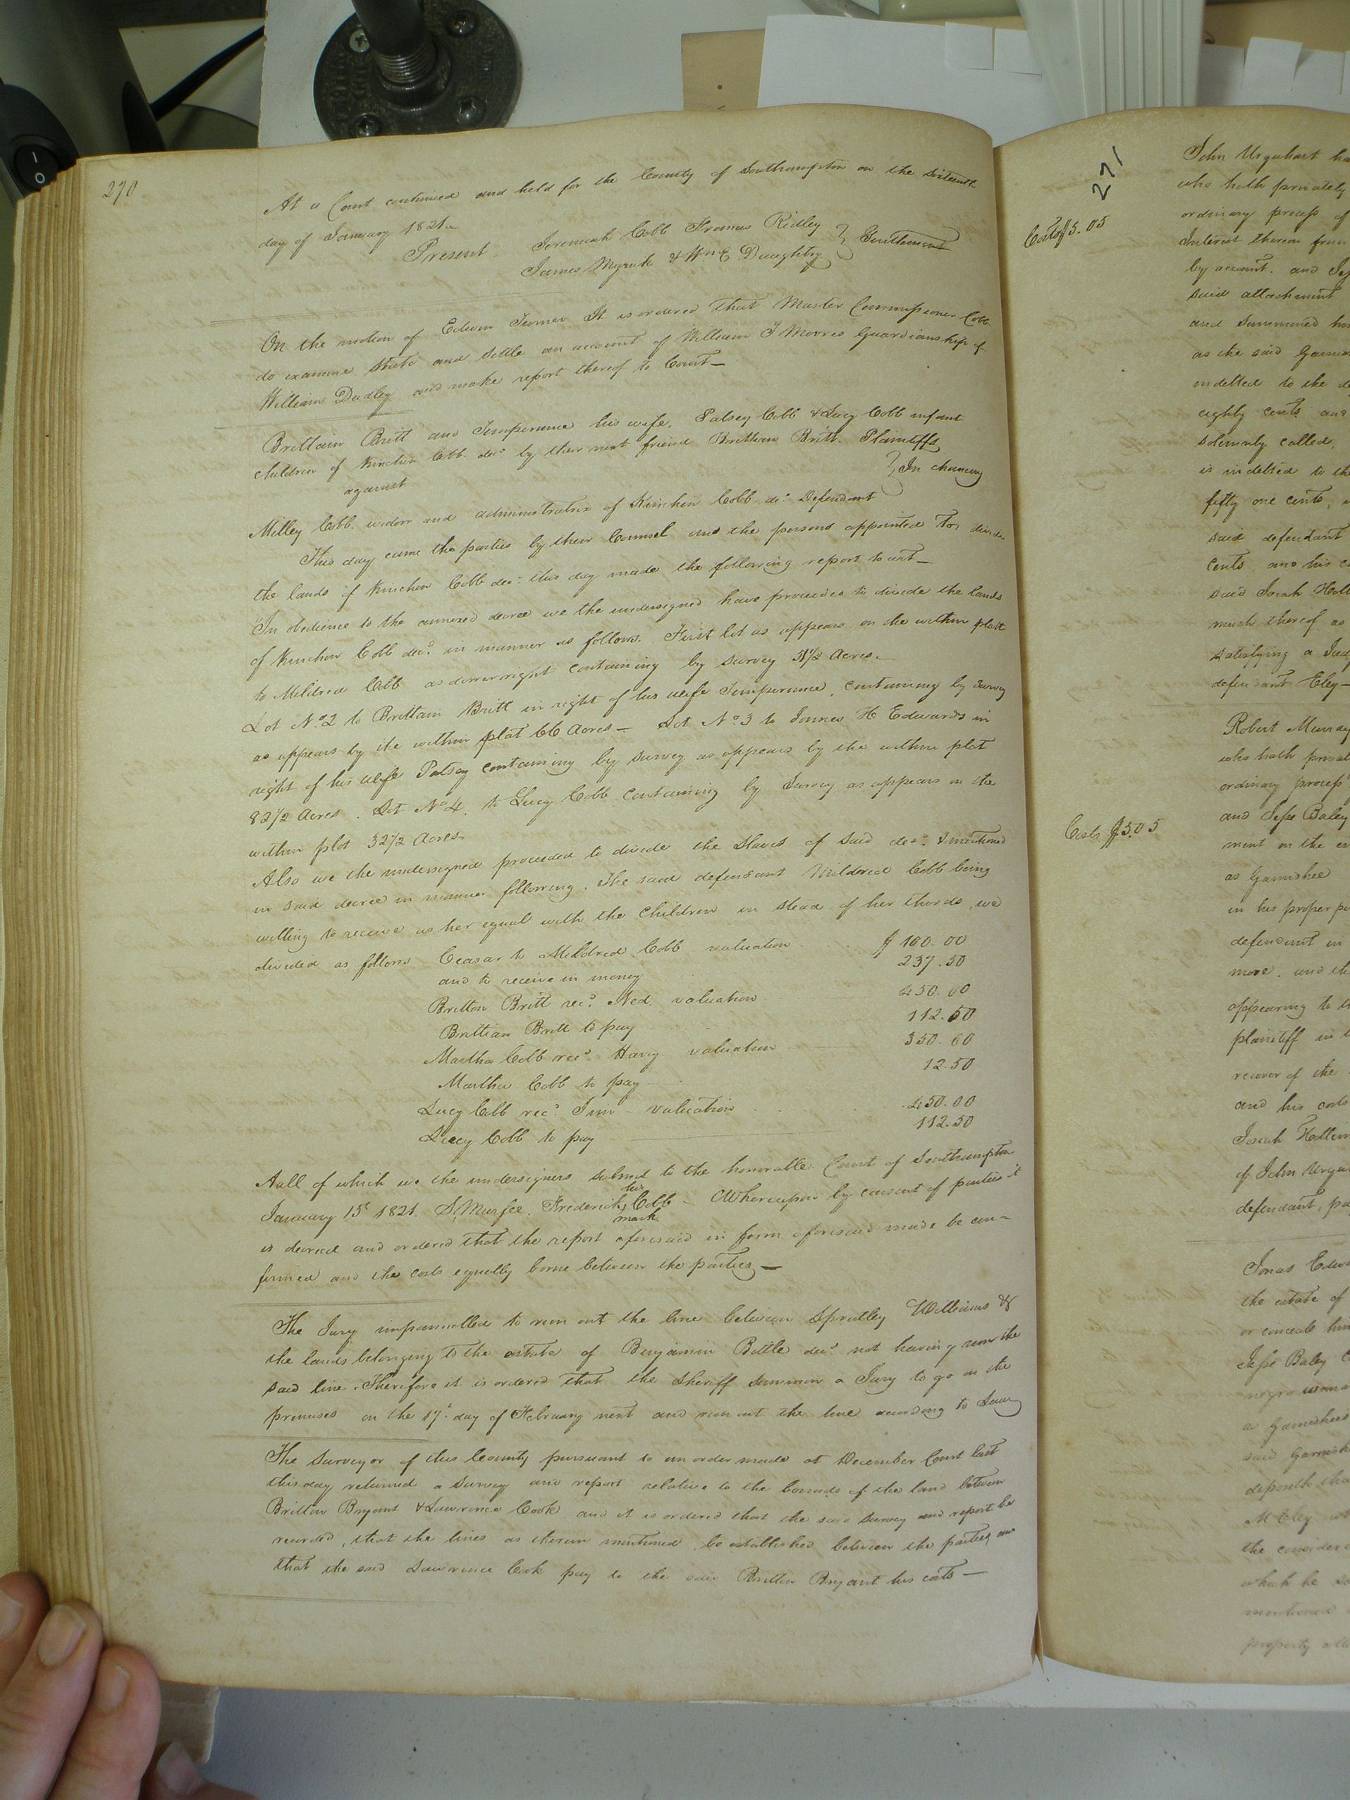 270
At a Court continued and held for the County of Southampton on the sixteenth
day of January 1821.
Present Jeremiah Cobb Francis Ridley
James Myrick & Wm E Daughtry } Gentlemen
On the motion of Edwin Turner It is ordered that Master Commissioner Cobb
do examine State and settle an account of William T Morris Guardianship of
William Dudley and make report thereof to Court—
Brittain Britt and Temperance his wife, Patsey Cobb & Lucy Cobb infant
children of Kinchen Cobb decd by their next friend Brittain Britt. Plaintiffs
against } In chancery
Milley Cobb widow and administratrix of Kinchen Cobb decd Defendant
This day came the parties by their Counsel and the persons appointed to divide
the lands of Kinchen Cobb decd this day made the following report to wit—
In obedience to the annexed decree we the undersigned have proceeded to divide the lands
of Kinchen Cobb decd in manner as follows. First lot as appears on the within plat
to Mildred Cobb as dower right containing by survey Acres.
Lot No 2 to Brittain Britt in right of his wife Temperance, containing by survey
as appears by the within plat 66 Acres— Lot No 3 to James H Edwards in
right of his wife Patsey containing by survey as appears by the within plat
82 1/2 Acres. Lot No 4. to Lucy Cobb containing by Survey as appears in the
within plot 32 1/2 Acres
Also we the undersigned proceeded to divide the slaves of said decd & mentioned
in said decree in manner following. The said defendant Mildred Cobb being
willing to receive as her equal with the children in stead of her thirds, we
divided as follows Ceasar to Mildred Cobb valuation $ 100.00
and to receive in money 237.50
Britton Britt recd Ned valuation 450.00
Brittian Britt to pay 112.50
Martha Cobb recd Harry valuation 350.00
Martha Cobb to pay 12.50
Lucy Cobb recd Jim valuation 450.00
Lucy Cobb to pay 112.50
A all of which we the undersigners submit to the honorable Court of Southampton
January 15th 1821. S. Murfee, Frederick his Cobb — Whereupon by consent of parties it
mark
is decreed and ordered that the report aforesaid in form aforesaid made be con-
firmed and the costs equally borne between the parties—
The Jury impannelled to run out the line between Spratley Williams &
the lands belonging to the estate of Benjamin Battle decd not having run the
said line. Therefore it is ordered that the Sheriff summon a Jury to go on the
premises on the 17th day of February next and run out the line according to Law
The Surveyor of this County pursuant to an order made at December Court last
this day returned a Survey and report relative to the bounds of the land between
Britton Bryant & Lawrence Cook and it is ordered that the said Survey and report be
recorded, that the lines as therein mentioned be established between the parties, and
that the said Lawrence Cook pay to the said Britton Bryant his costs—
271
Costs $5.05
Costs $5.05
John Urquhart
who hath privately
ordinary process of
Interest thereon from
by account. and
said attachment
and summoned
as the said
indebted to the
eighty cents and
solemnly called,
is indebted to the
fifty one cents,
said defendant
cents and his
said Josiah
much thereof as
satisfying a
defendant Eley—
Robert Murray
who hath
ordinary process
and Jesse Baley
ment on the
as Garnishee
in his proper
defendant in
more. and
appearing to
plaintiff in
recover of the
and his costs
Josiah
of John
defendant, pa
Jonas
the estate of
or conceals
Jesse Baley
negro woman
a Garnishee
said
deposeth that
the
which he
mentioned
property